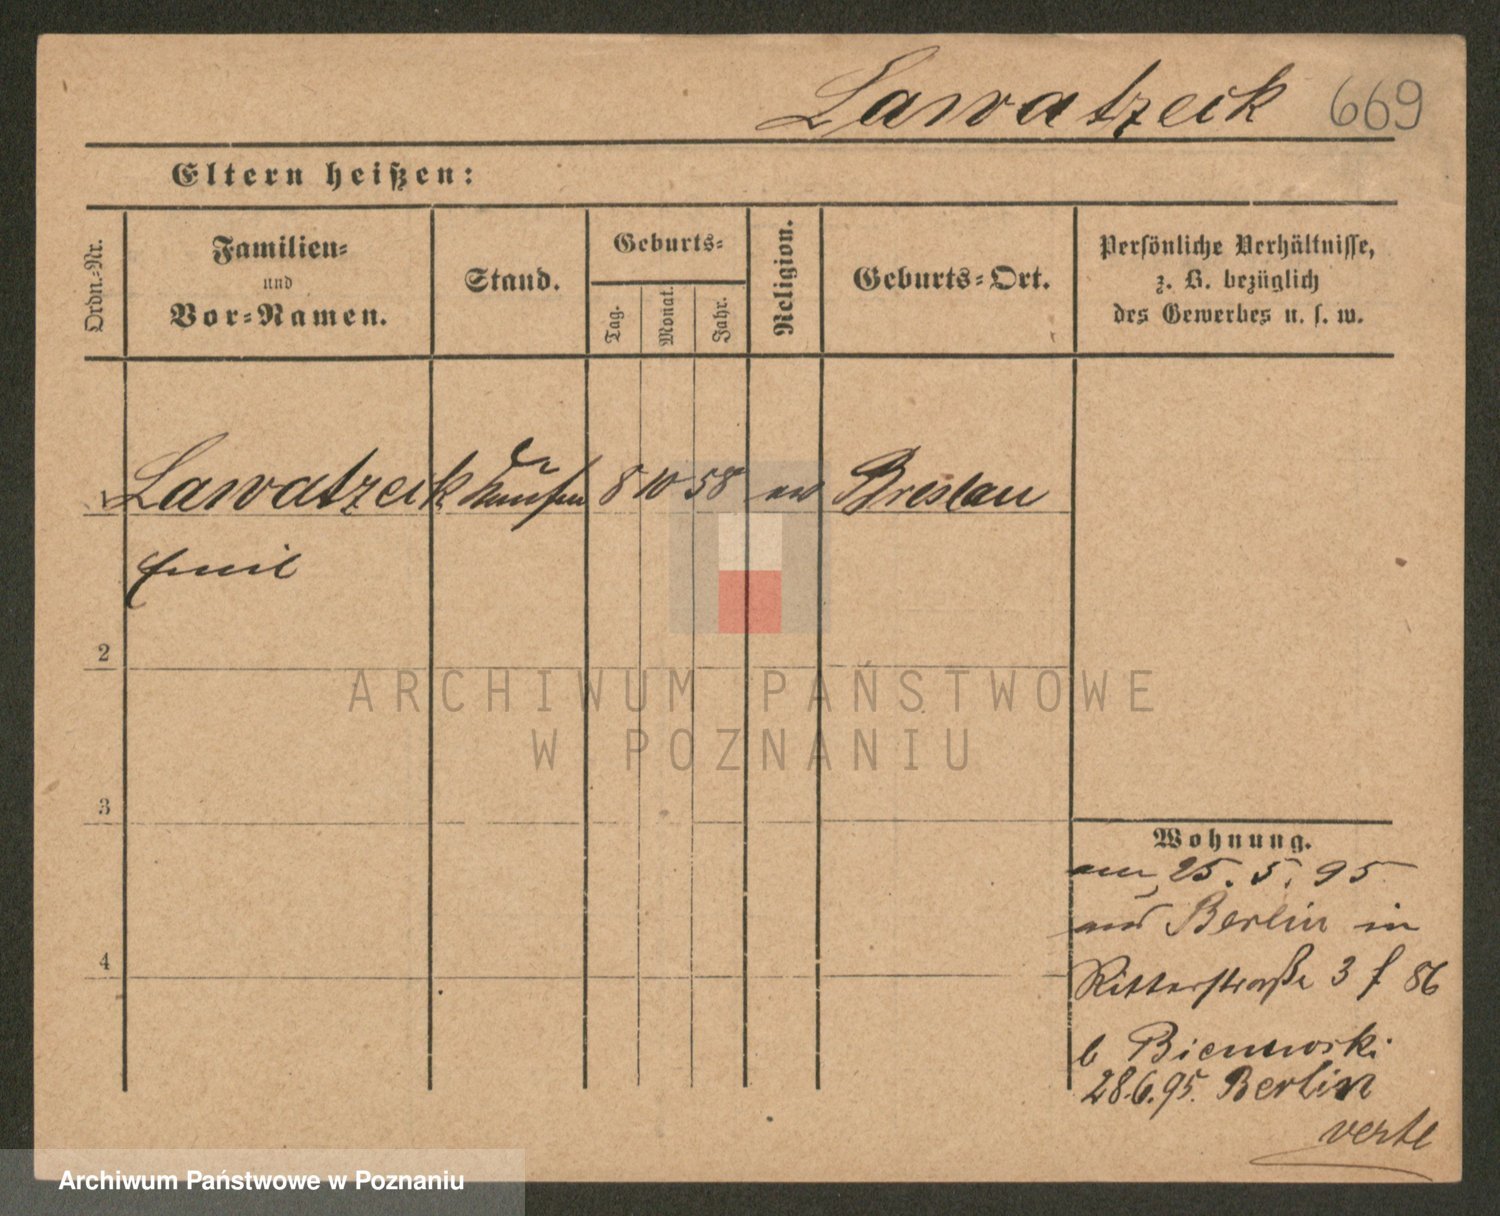 Lawatzeck 669
Eltern heißen:
Ordn.-Nr.
Familien-
und
Vor-Namen.
Stand.
Geburts-
Tag.
Monat.
Jahr.
Religion.
Geburts-Ort.
Persönliche Verhältnisse,
z. B. bezüglich
des Gewerbes u. s. w.
Lawatzeck Kaufm 8 10 58 ev Breslau
Emil
2
3
4
Wohnung.
am 25. 5. 95
aus Berlin in
Ritterstraße 3 f 86
b
28.6.95. Berlin
verte
ARCHIWUM PAŃSTWOWE
W POZNANIU
Archiwum Państwowe w Poznaniu